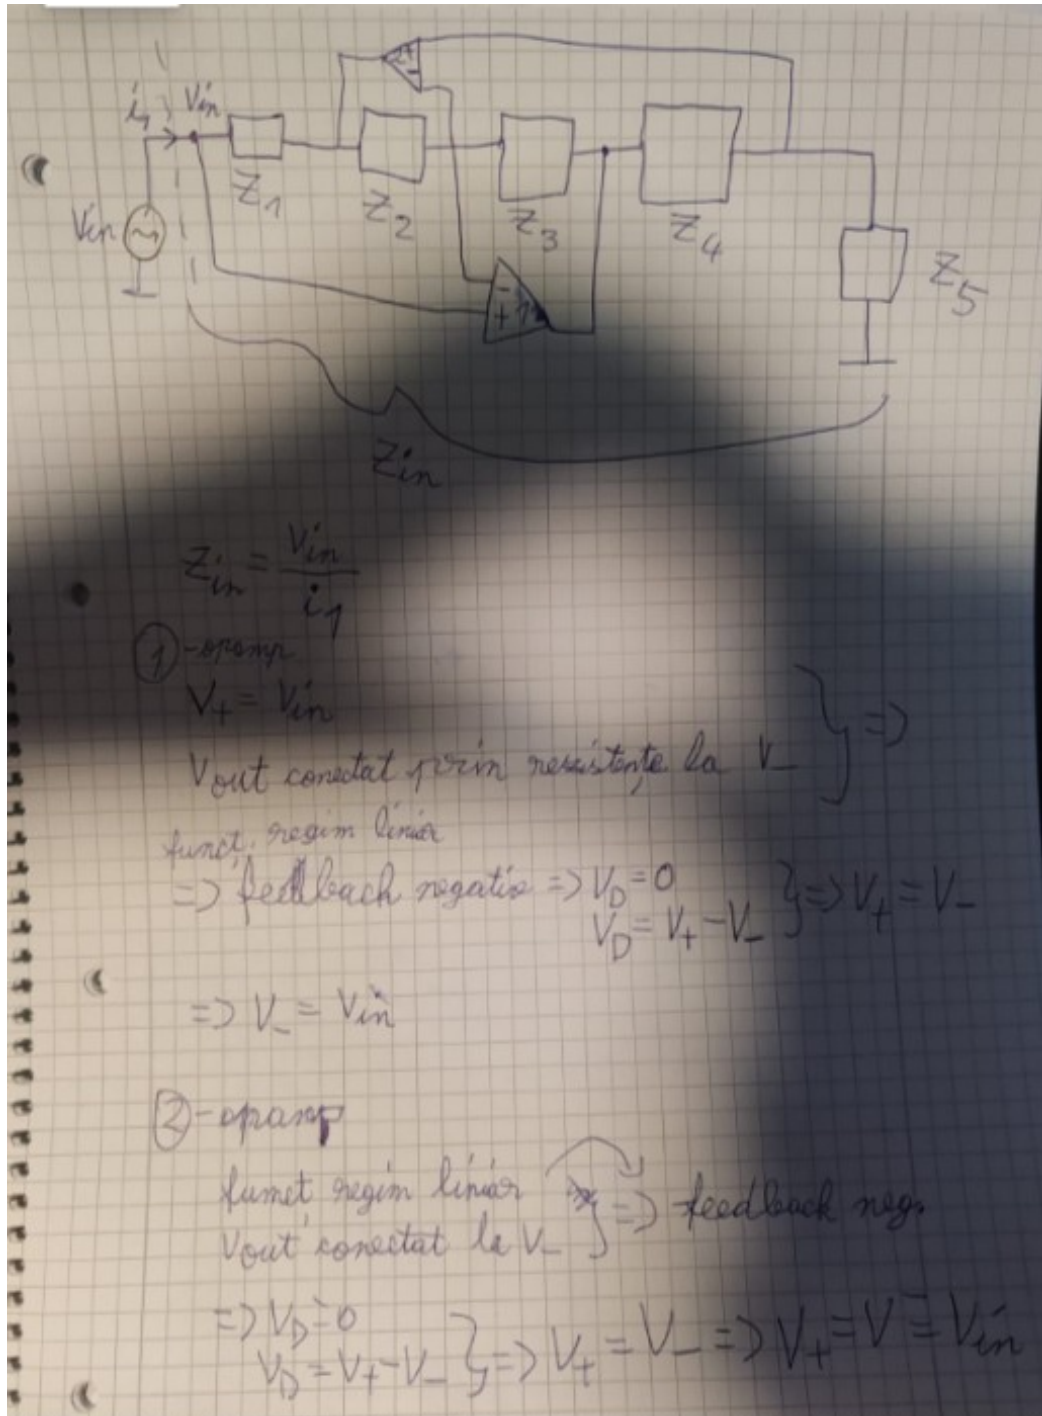 i₁ Vin
Vin
Z₁
Z₂
Z₃
Z₄
Z₅
2 + -
- + 1
Zin
Zin = Vin / i₁
① -opamp
V₊ = Vin
Vout conectat prin rezistențe la V₋ } =>
funct. regim liniar
=> feedback negativ => V_D = 0
V_D = V₊ - V₋ } => V₊ = V₋
=> V₋ = Vin
② -opamp
funct regim liniar
Vout conectat la V₋ } => feedback neg.
=> V_D = 0
V_D = V₊ - V₋ } => V₊ = V₋ => V₊ = V₋ = Vin